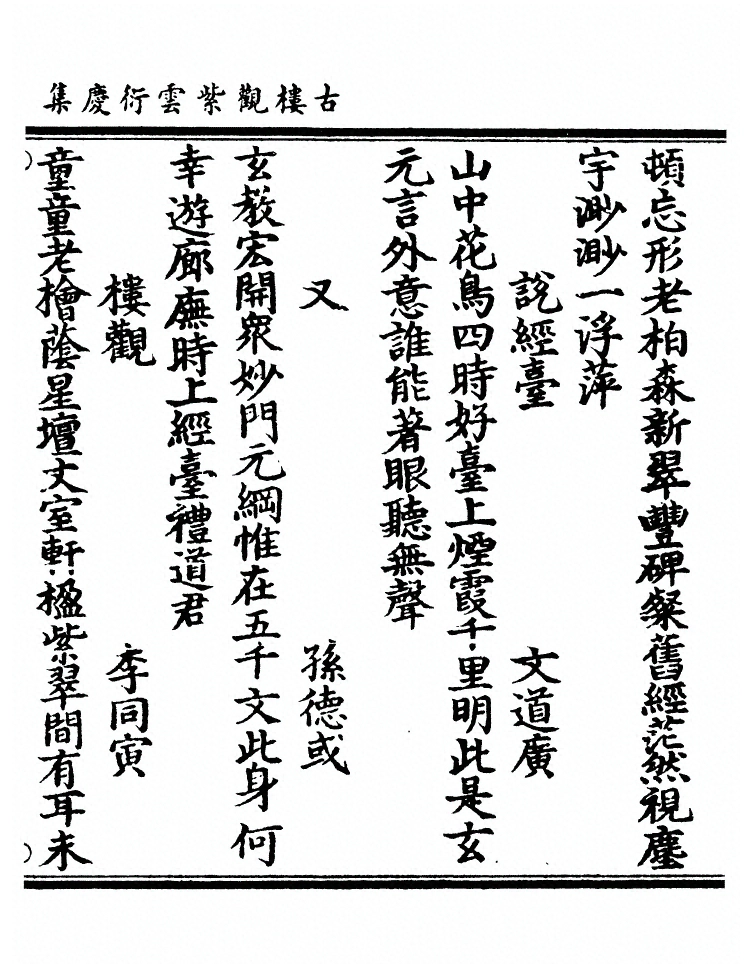 古樓觀紫雲衍慶集
頓忘形老柏森新翠豐碑粲舊經茫然視塵
宇渺渺一浮萍
說經臺　文道廣
山中花鳥四時好臺上煙霞千里明此是玄
元言外意誰能著眼聽無聲
又　孫德彧
玄教宏開衆妙門元綱惟在五千文此身何
幸遊廊廡時上經臺禮道君
樓觀　李同寅
童童老檜蔭星壇丈室軒楹紫翠間有耳未